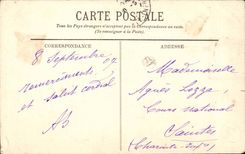 CARTE POSTALE
Tous les Pays étrangers n'acceptent pas la Correspondance au recto.
(Se renseigner à la Poste).
CORRESPONDANCE
ADRESSE
8 Septembre 07
remerciements
et salut cordial
AB
Mademoiselle
Agnès
Cours national
Saintes
(Charente-Infre)